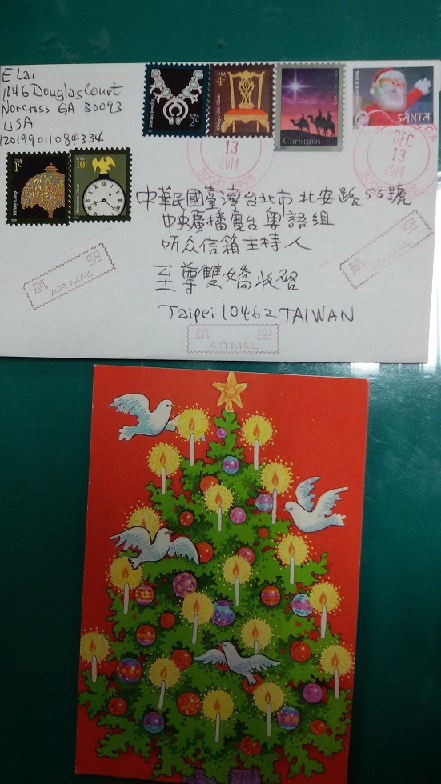 E Lai
1846 Douglas Court
Norcross GA 30093
USA
2¢
USA
4¢
Christmas
SANTA
13
2014
DEC
13
2014
1¢
10
中華民國臺灣台北市北安路55號
中央廣播電台粵語組
听众信箱主持人
至尊雙嬌收啓
Taipei 10462 TAIWAN
AIR MAIL
AIR MAIL
AIR MAIL